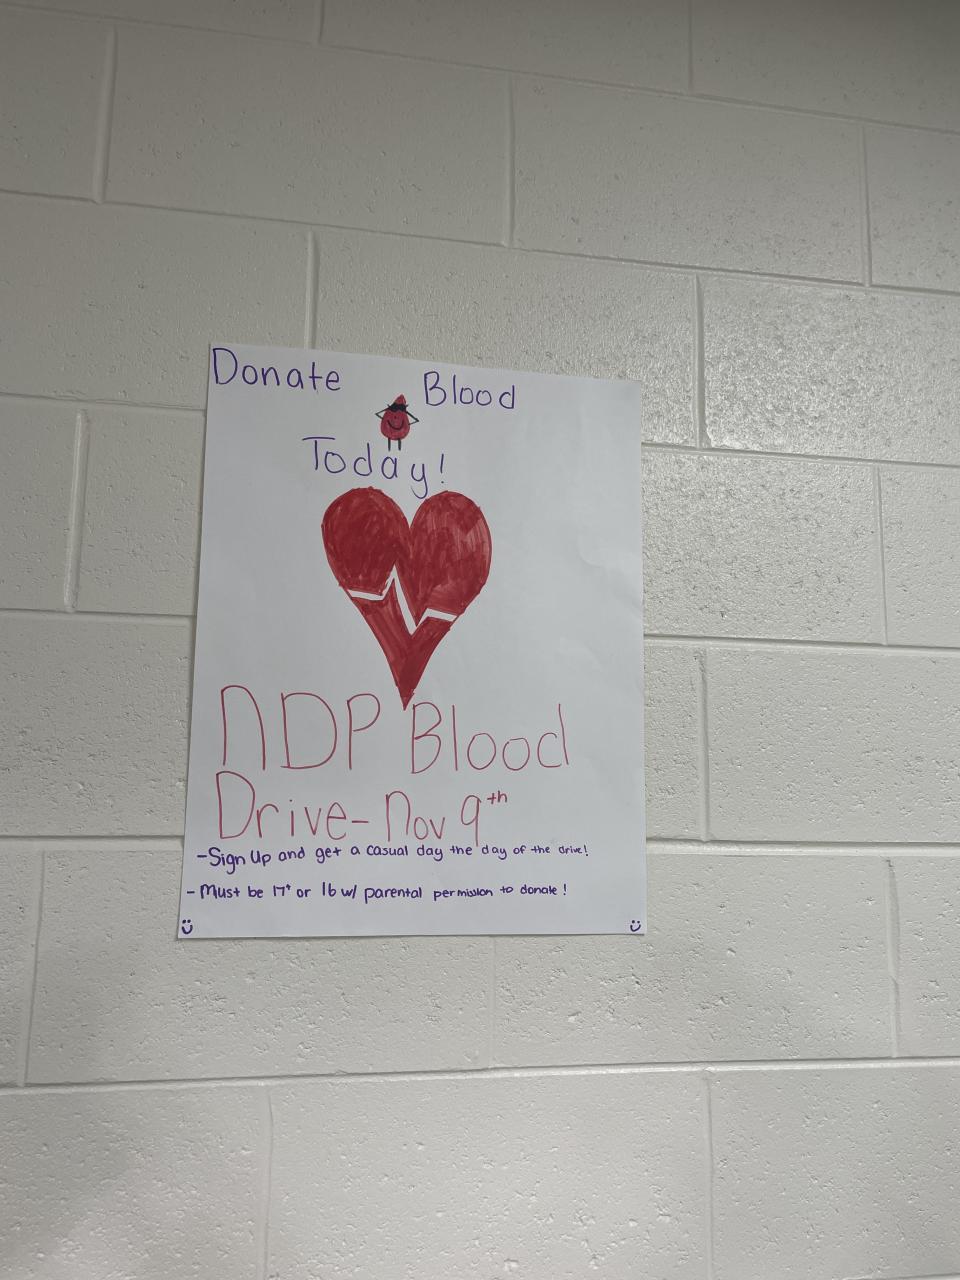 Donate Blood
Today!
NDP Blood
Drive- Nov 9th
-Sign Up and get a casual day the day of the drive!
- Must be 17+ or 16 w/ parental permission to donate!